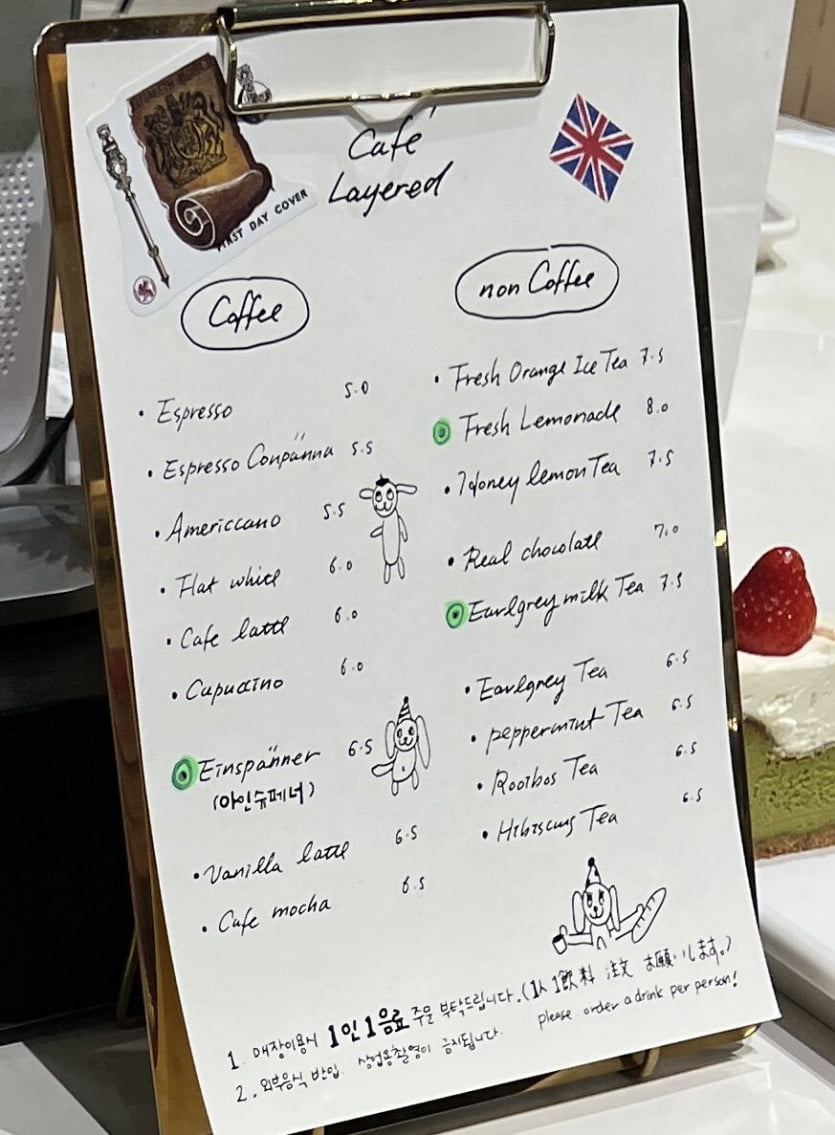 FIRST DAY COVER
Café
Layered
Coffee
• Espresso 5.0
• Espresso Conpänna 5.5
• Americcano 5.5
• Flat white 6.0
• Cafe latte 6.0
• Capuccino 6.0
Einspänner 6.5
(아인슈페너)
• Vanilla latte 6.5
• Cafe mocha 6.5
non Coffee
• Fresh Orange Ice Tea 7.5
Fresh Lemonade 8.0
• Honey lemon Tea 7.5
• Real chocolate 7.0
Earlgrey milk Tea 7.5
• Earlgrey Tea 6.5
• peppermint Tea 6.5
• Rooibos Tea 6.5
• Hibiscus Tea 6.5
1.매장이용시 1인1음료 주문 부탁드립니다. (1人 1飲料 注文 お願いします。)
please order a drink per person!
2. 외부음식 반입. 상업용촬영이 금지됩니다.